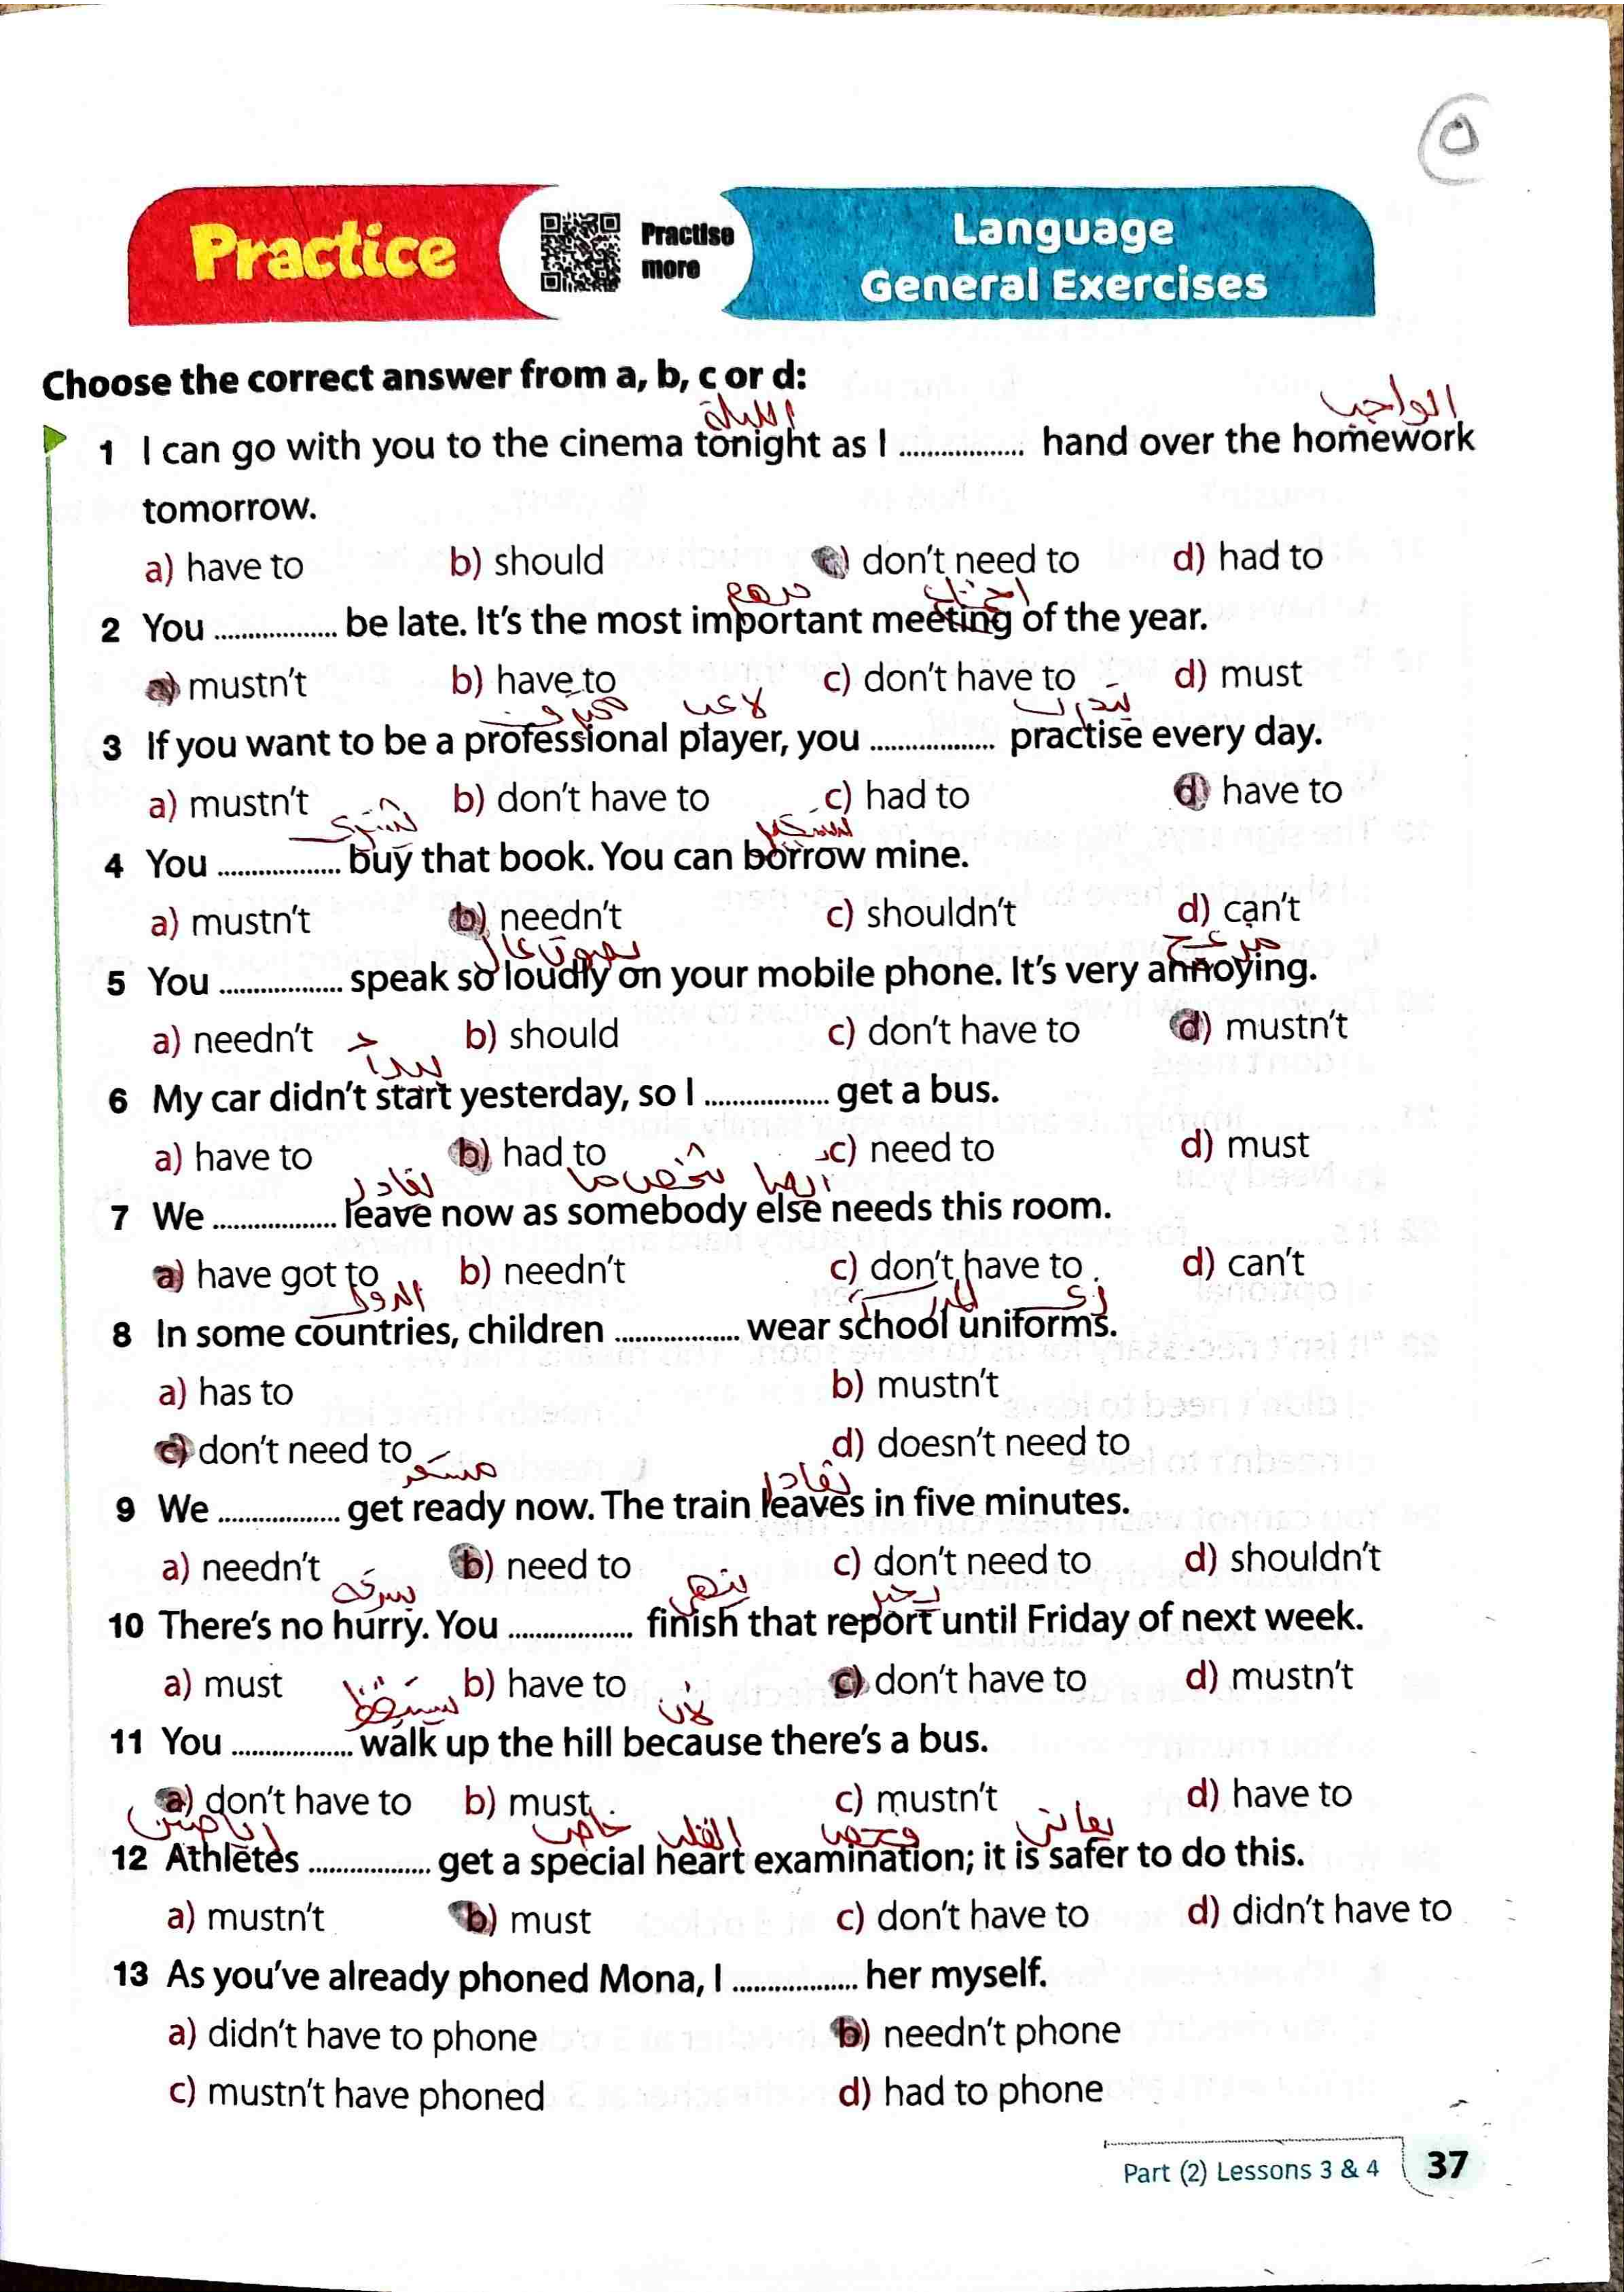 ٥
Practice
Practise
more
Language
General Exercises
Choose the correct answer from a, b, c or d:
الليلة الواجب
1 I can go with you to the cinema tonight as I .................. hand over the homework
tomorrow.
a) have to b) should c) don't need to d) had to
2 You .................. be late. It's the most important meeting of the year.
a) mustn't b) have to c) don't have to d) must
لاعب
3 If you want to be a professional player, you .................. practise every day.
a) mustn't b) don't have to c) had to d) have to
4 You .................. buy that book. You can borrow mine.
a) mustn't b) needn't c) shouldn't d) can't
مزعج
5 You .................. speak so loudly on your mobile phone. It's very annoying.
a) needn't b) should c) don't have to d) mustn't
6 My car didn't start yesterday, so I .................. get a bus.
a) have to b) had to c) need to d) must
7 We .................. leave now as somebody else needs this room.
a) have got to b) needn't c) don't have to d) can't
الدول
8 In some countries, children .................. wear school uniforms.
a) has to b) mustn't
c) don't need to d) doesn't need to
9 We .................. get ready now. The train leaves in five minutes.
a) needn't b) need to c) don't need to d) shouldn't
10 There's no hurry. You .................. finish that report until Friday of next week.
a) must b) have to c) don't have to d) mustn't
لان
11 You .................. walk up the hill because there's a bus.
a) don't have to b) must c) mustn't d) have to
خاص القلب
12 Athletes .................. get a special heart examination; it is safer to do this.
a) mustn't b) must c) don't have to d) didn't have to
13 As you've already phoned Mona, I .................. her myself.
a) didn't have to phone b) needn't phone
c) mustn't have phoned d) had to phone
Part (2) Lessons 3 & 4 37